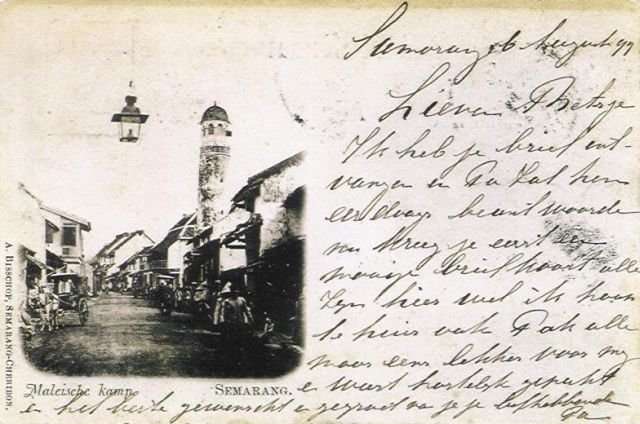 Samarang 6 August 99
Lieven Betsje
Ik heb je brief ont-
vangen en Pa zal hem
eerdaags beantwoorde
nu kreeg je eerst een
mooije briefkaart alle
zijn hier wel ik hoop
te huis ook Pak alle
maar eens lekker voor my
e wart hartelijk gekust
e het beste gewenscht e gegroet va je je liefhebbende
Pa
Maleische kamp.
SEMARANG.
A. BISSCHOP, SEMARANG-CHERIBON.